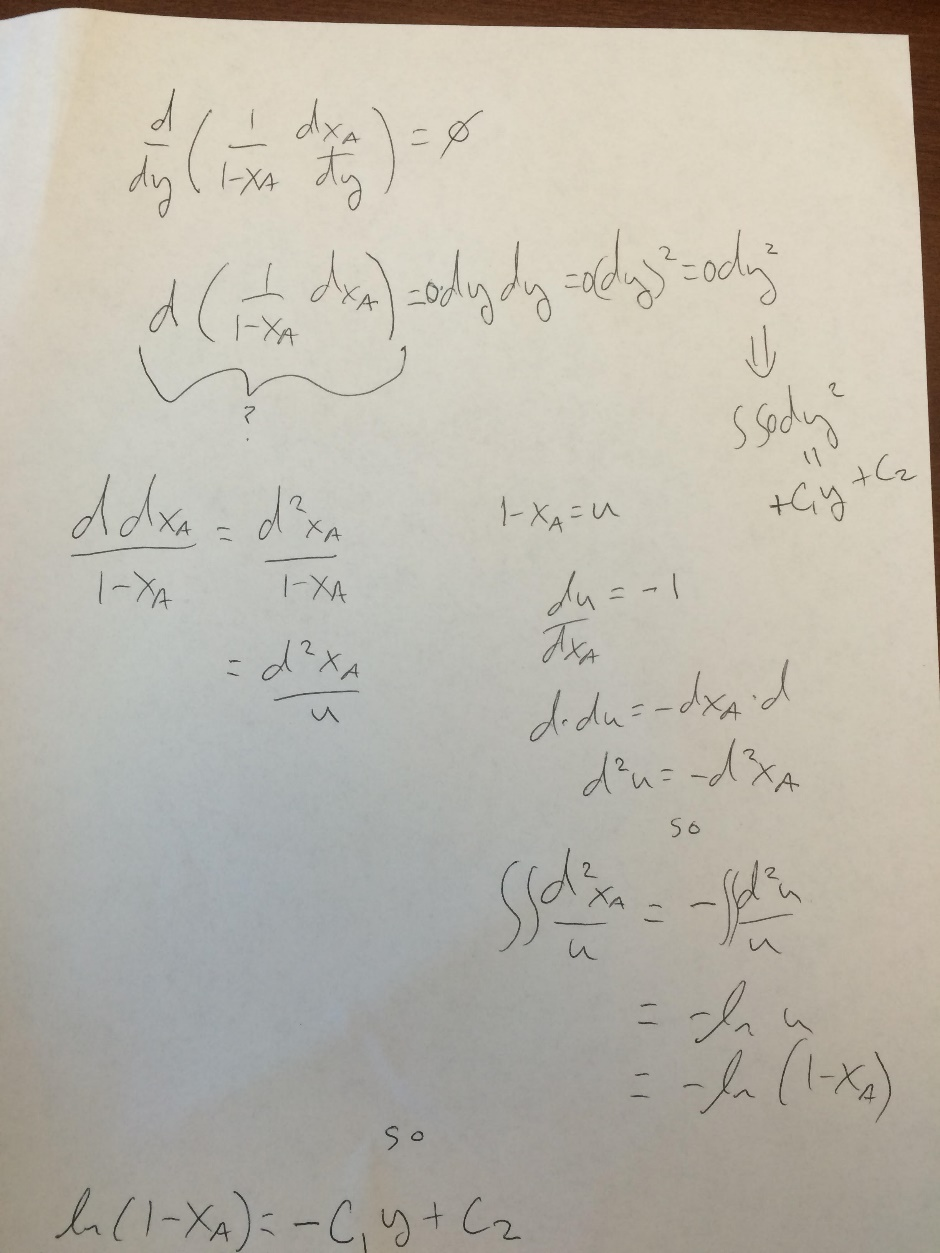 d/dy ( 1/(1-x_A) dx_A/dy ) = ∅
d ( 1/(1-x_A) dx_A ) = 0·dy dy = 0(dy)² = 0dy²
?
⇓
∫∫0dy²
=
+C₁y + C₂
d dx_A/(1-x_A) = d²x_A/(1-x_A)
= d²x_A/u
1-x_A = u
du/dx_A = -1
d·du = -dx_A·d
d²u = -d²x_A
so
∫∫ d²x_A/u = -∫∫ d²u/u
= -ln u
= -ln (1-x_A)
so
ln(1-x_A) = -C₁y + C₂